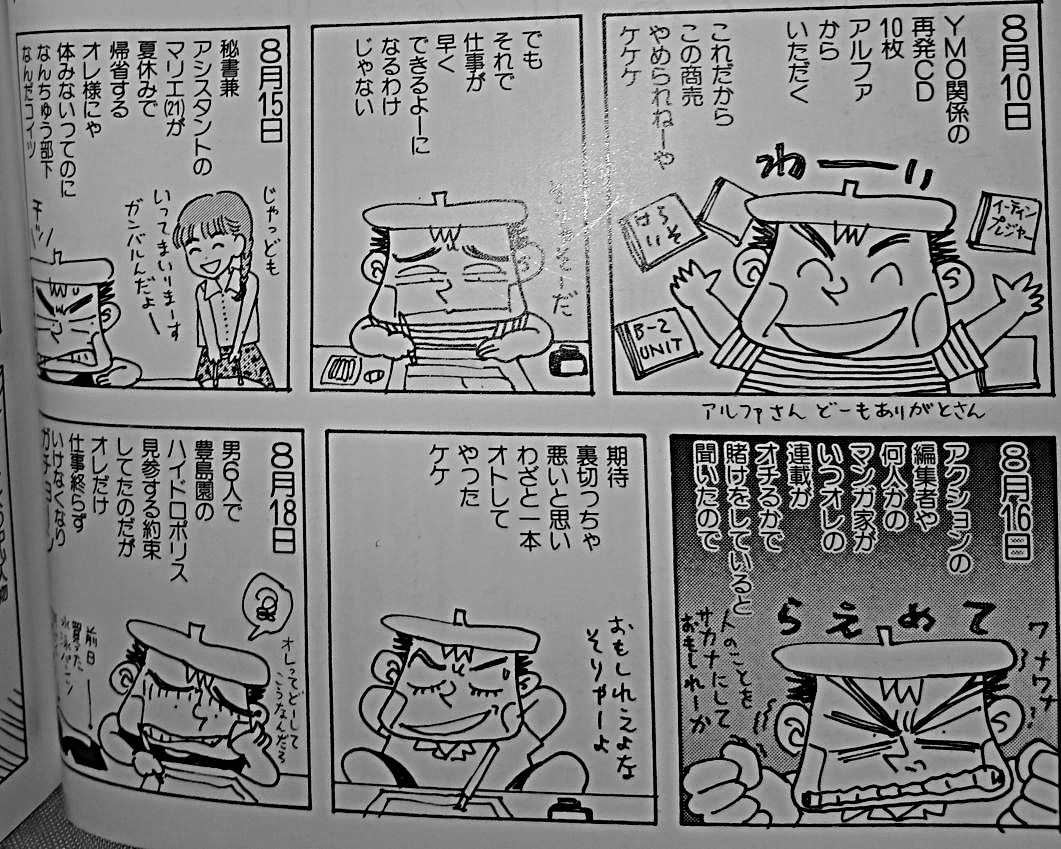 8月10日
YMO関係の
再発CD
10枚
アルファ
から
いただく
これだから
この商売
やめられねーや
ケケケ
わーい
けろ
いそ
イーティン
プレジャー
B-2
UNIT
アルファさん どーもありがとさん
でも
それで
仕事が
早く
できるよーに
なるわけ
じゃない
8月15日
秘書兼
アシスタントの
マリエ(21)が
夏休みで
帰省する
オレ様にゃ
体みないつてのに
なんちゅう部下
なんだコイツ
じゃっども
いってまいりまーす
ガンバルんだよー
8月16日
アクションの
編集者や
何人かの
マンガ家が
いつオレの
連載が
オチるかで
賭けをしていると
聞いたので
てめえら
ワナワナ
人のことを
サカナにして
おもしれーか
期待
裏切っちゃ
悪いと思い
わざと一本
オトして
やった
ケケ
おもしれえよな
そりゃーよ
8月18日
男6人で
豊島園の
ハイドロポリス
見参する約束
してたのだが
オレだけ
仕事終らず
いけなくなり
オレってどーして
こうなんだろ
前日
買った